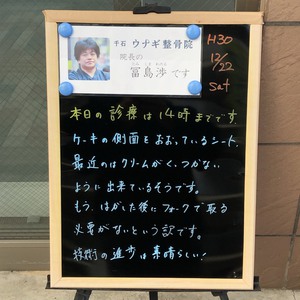 千石 ウナギ整骨院
院長の
冨島渉です
H30
12/22
Sat
本日の診療は14時までです
ケーキの側面をおおっているシート、
最近のはクリームがくっつかない
ように出来ているそうです。
もう、はがした後にフォークで取る
必要がないという訳です。
技術の進歩は素晴らしい!